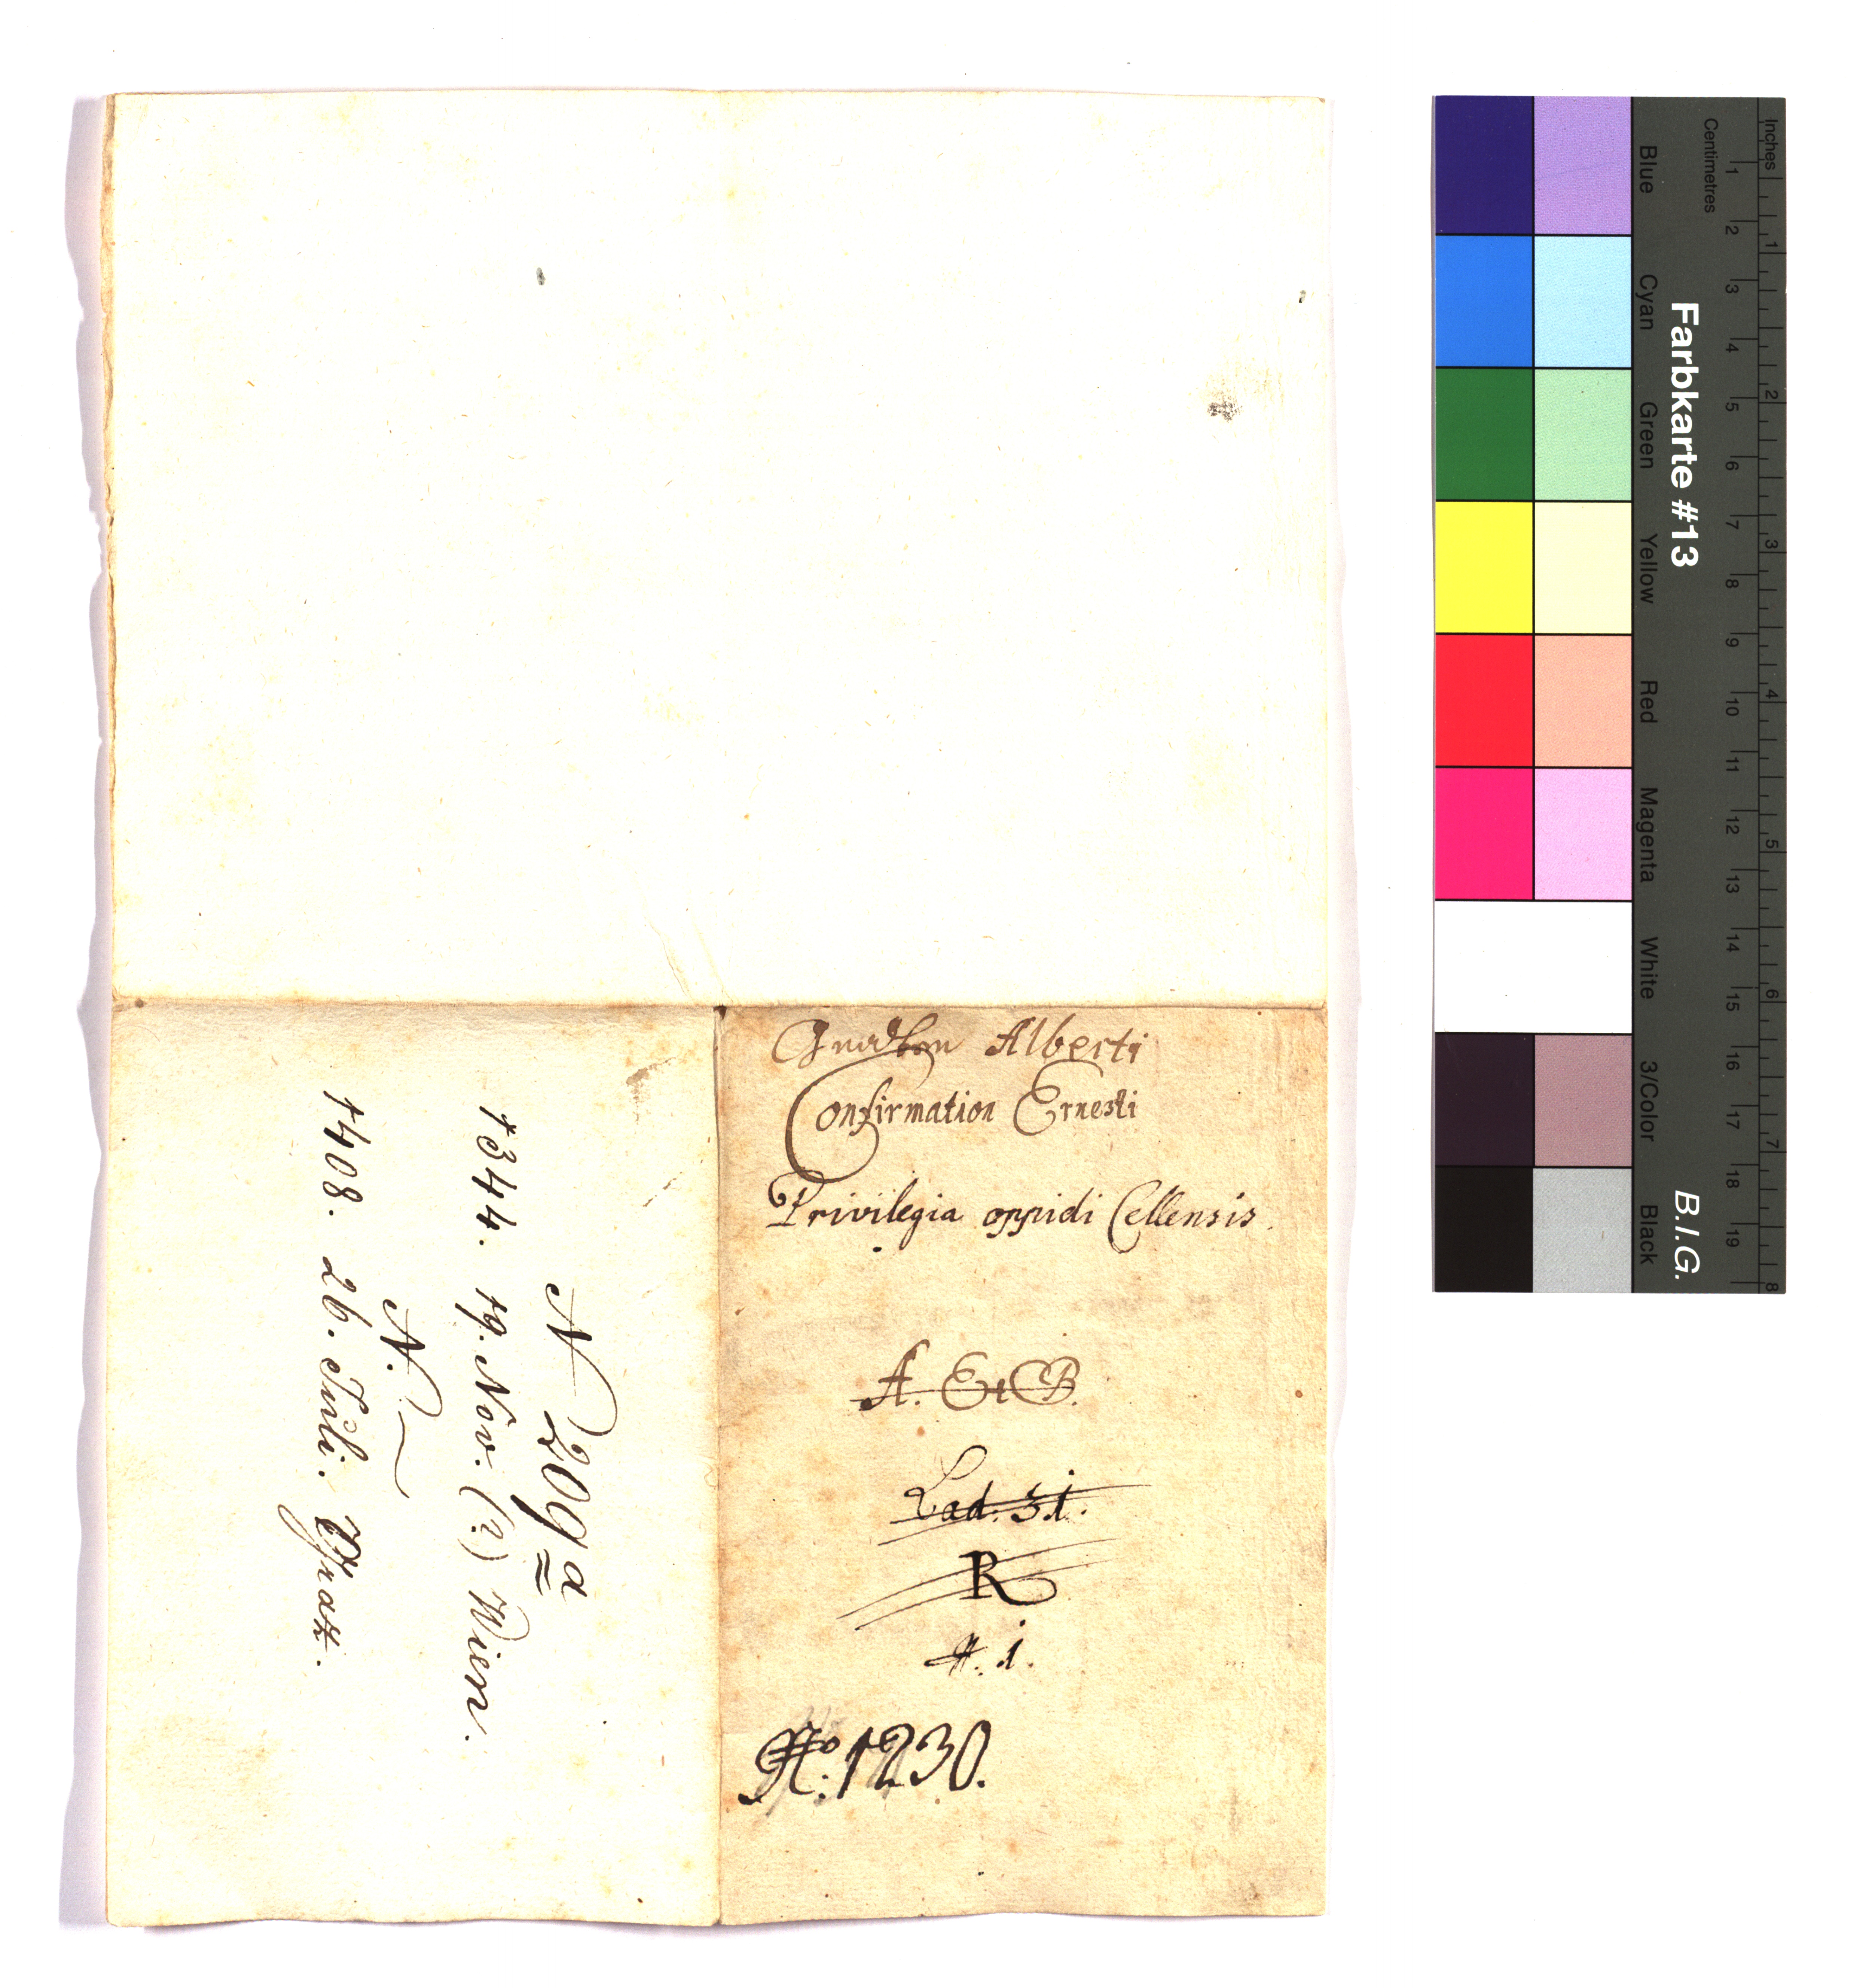 Gnadton Alberti
Confirmation Ernesti
Privilegia oppidi Cellensis.
A. Et B.
Lad. 31.
R
N. 1.
No. 1230.
N 209 a
1344. 19. Nov. (?) Wien.
N.
1408. 26. Juli. Graz.
Inches
Centimetres
Farbkarte #13
B.I.G.
Blue
Cyan
Green
Yellow
Red
Magenta
White
3/Color
Black
1 2 3 4 5 6 7 8 9 10 11 12 13 14 15 16 17 18 19
1 2 3 4 5 6 7 8